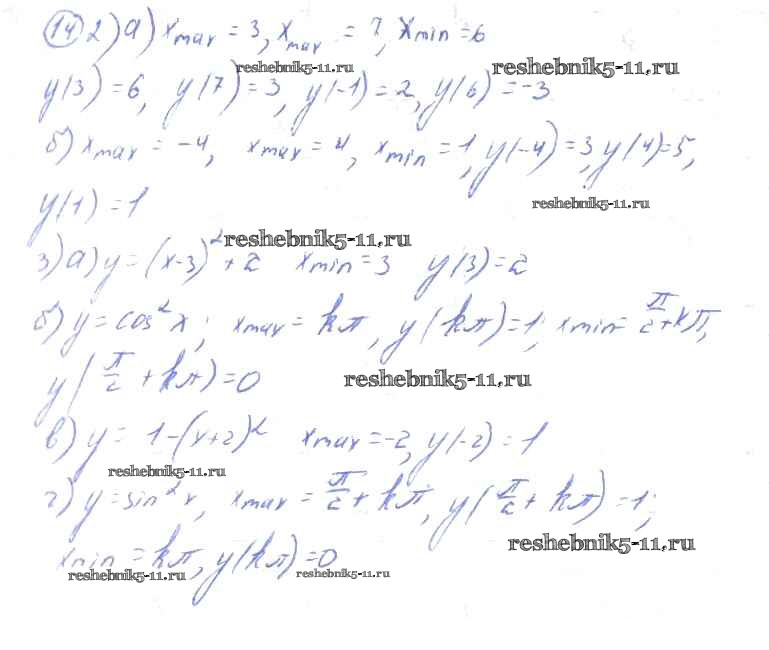 14 2) а) xmax = 3, xmax = 7, xmin = 6
reshebnik5-11.ru reshebnik5-11.ru
y(3) = 6, y(7) = 3, y(-1) = 2, y(6) = -3
б) xmax = -4, xmax = 4, xmin = 1, y(-4) = 3, y(4) = 5,
reshebnik5-11.ru
y(1) = 1
reshebnik5-11.ru
3) а) y = (x-3)² + 2 xmin = 3 y(3) = 2
б) y = cos² x; xmax = kπ, y(kπ) = 1; xmin = π/2 + kπ,
y(π/2 + kπ) = 0 reshebnik5-11.ru
в) y = 1 - (x+2)² xmax = -2, y(-2) = 1
reshebnik5-11.ru
г) y = sin² x, xmax = π/2 + kπ, y(π/2 + kπ) = 1;
reshebnik5-11.ru
xmin = kπ, y(kπ) = 0
reshebnik5-11.ru reshebnik5-11.ru